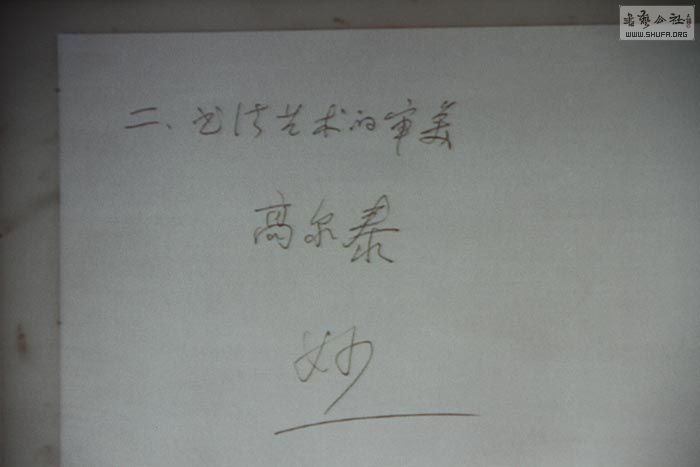 書藝公社
WWW.SHUFA.ORG
二、书法艺术的审美
高尔泰
妙